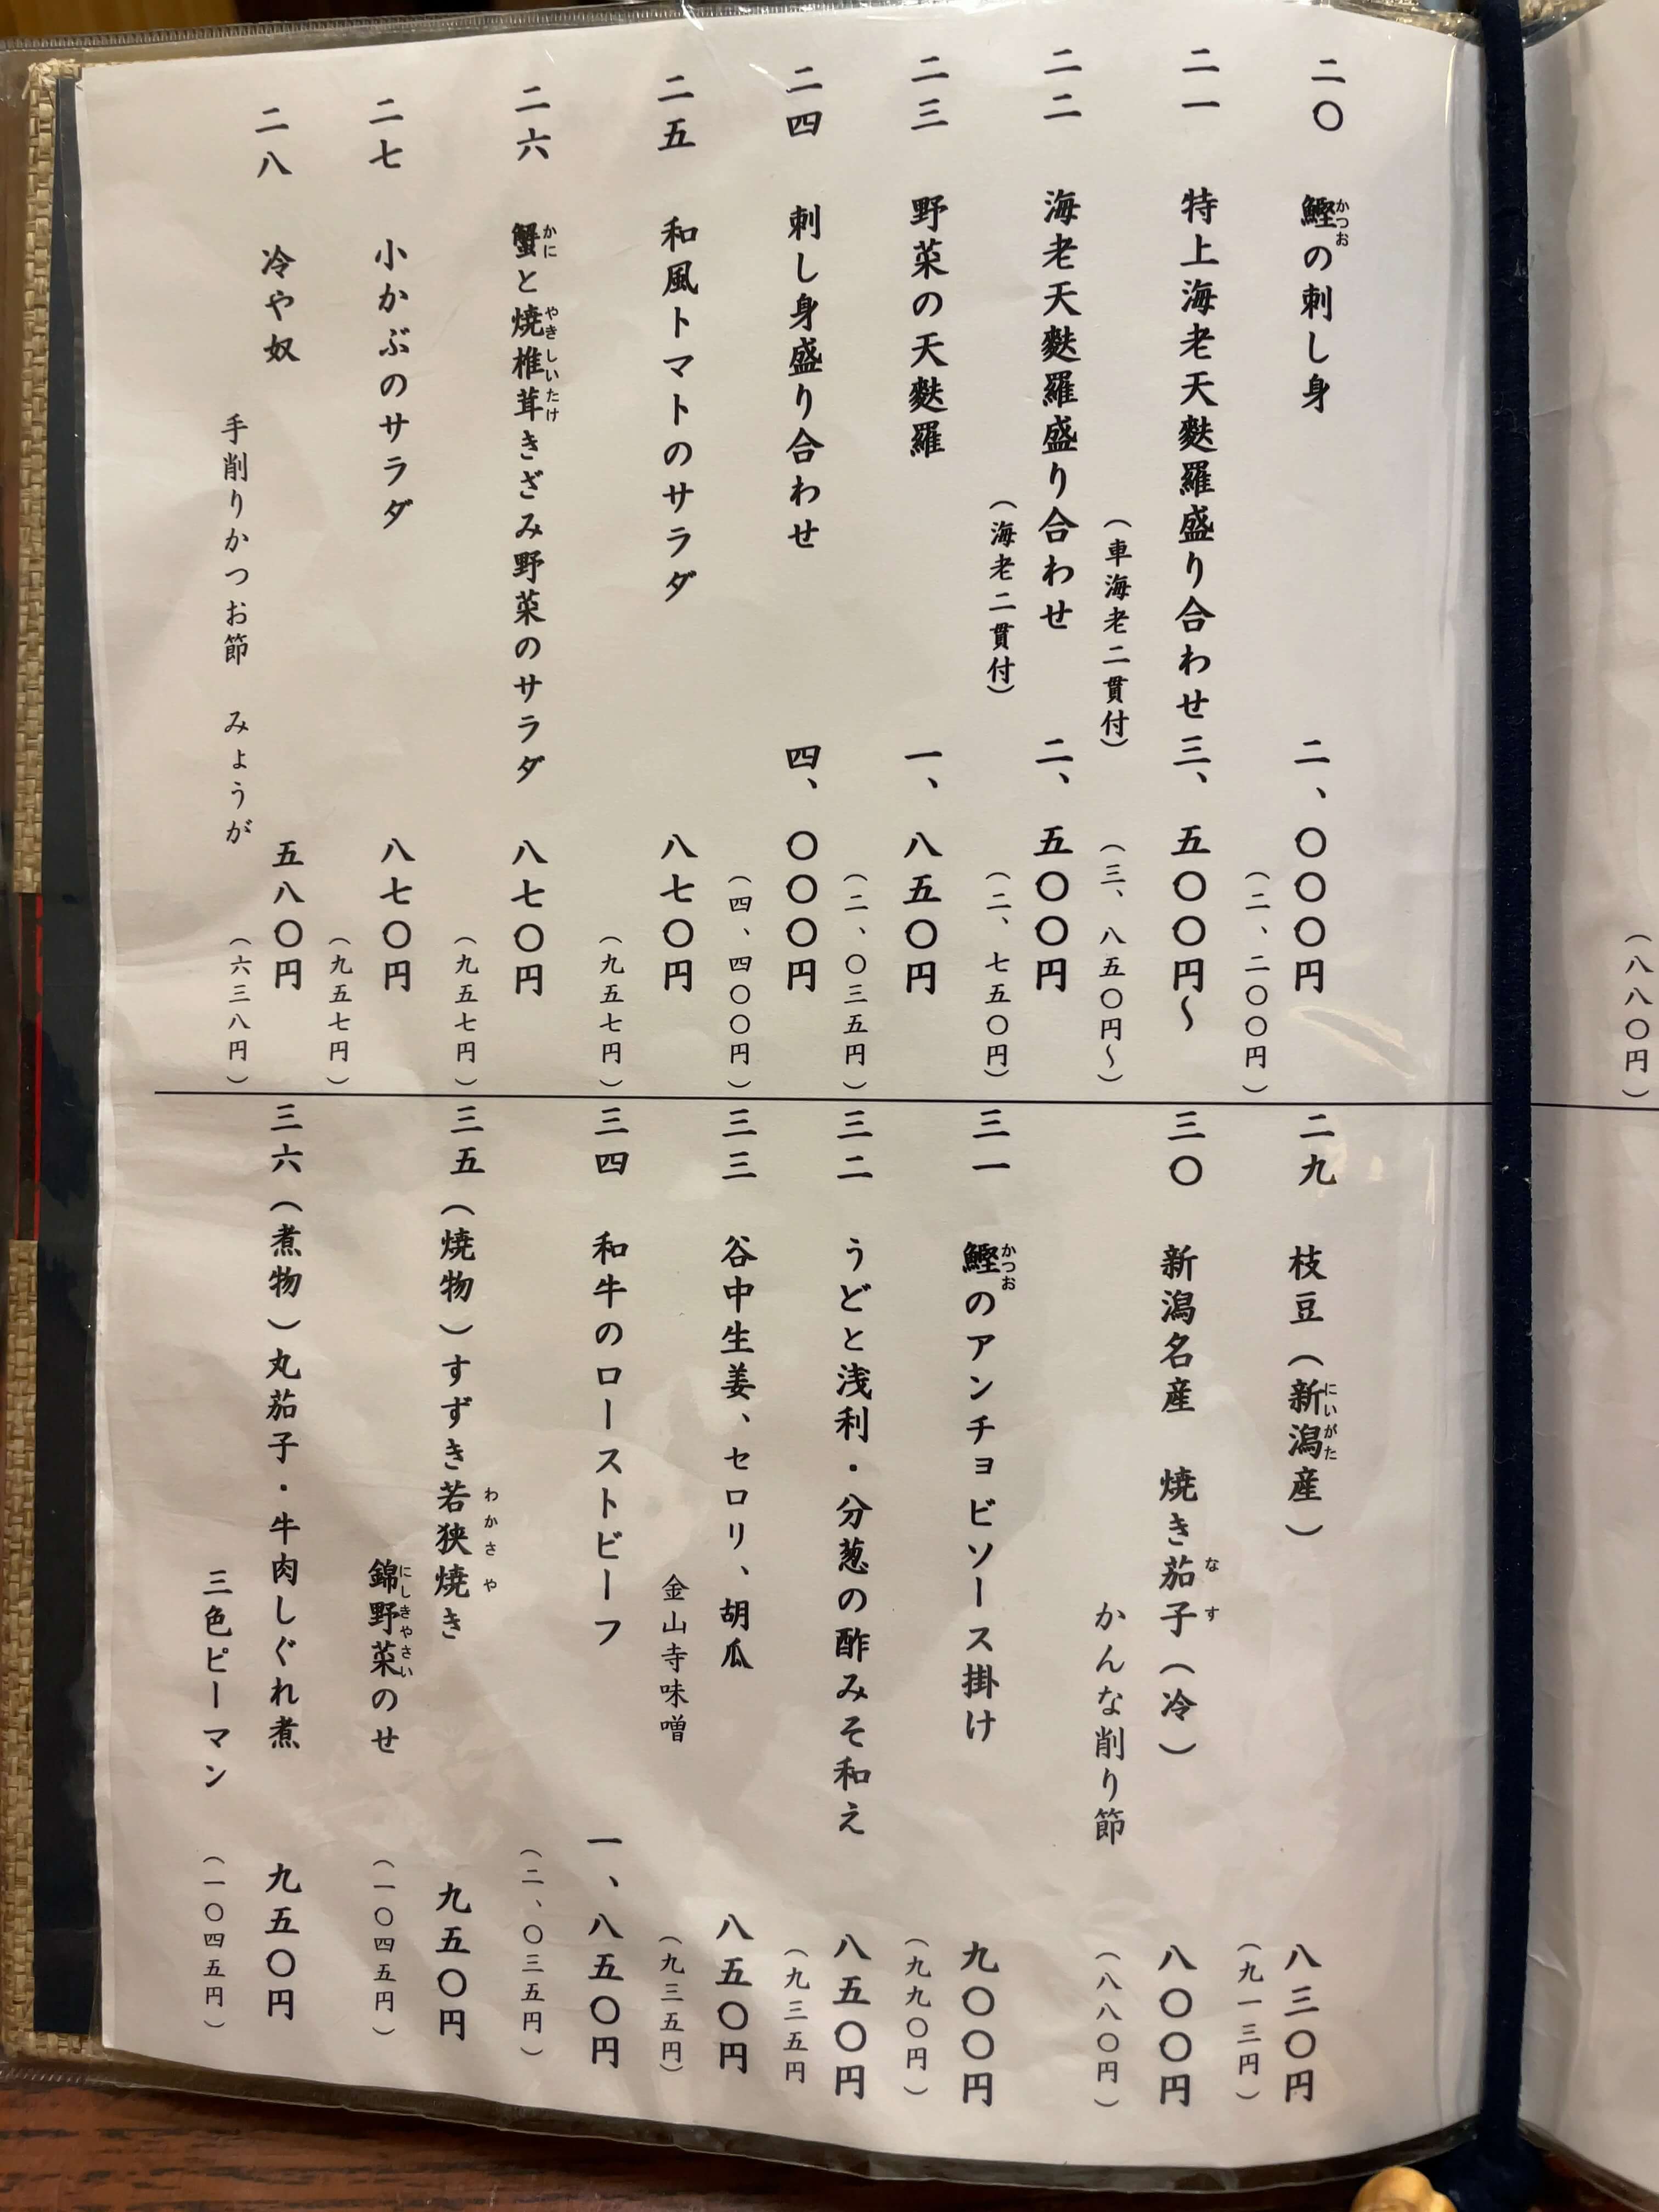 二〇 鰹の刺し身 二、〇〇〇円
かつお
(二、二〇〇円)
二一 特上海老天麩羅盛り合わせ 三、五〇〇円~
(車海老二貫付) (三、八五〇円~)
二二 海老天麩羅盛り合わせ 二、五〇〇円
(海老二貫付) (二、七五〇円)
二三 野菜の天麩羅 一、八五〇円
(二、〇三五円)
二四 刺し身盛り合わせ 四、〇〇〇円
(四、四〇〇円)
二五 和風トマトのサラダ 八七〇円
(九五七円)
二六 蟹と焼椎茸きざみ野菜のサラダ 八七〇円
かに やきしいたけ
(九五七円)
二七 小かぶのサラダ 八七〇円
(九五七円)
二八 冷や奴 五八〇円
手削りかつお節 みょうが (六三八円)
二九 枝豆(新潟産) 八三〇円
にいがた
(九一三円)
三〇 新潟名産 焼き茄子(冷) 八〇〇円
なす
かんな削り節 (八八〇円)
三一 鰹のアンチョビソース掛け 九〇〇円
かつお
(九九〇円)
三二 うどと浅利・分葱の酢みそ和え 八五〇円
(九三五円
三三 谷中生姜、セロリ、胡瓜 八五〇円
金山寺味噌 (九三五円)
三四 和牛のローストビーフ 一、八五〇円
(二、〇三五円)
三五(焼物)すずき若狭焼き 九五〇円
わかさや
錦野菜のせ (一〇四五円)
にしきやさい
三六(煮物)丸茄子・牛肉しぐれ煮 九五〇円
三色ピーマン (一〇四五円)
(八八〇円)